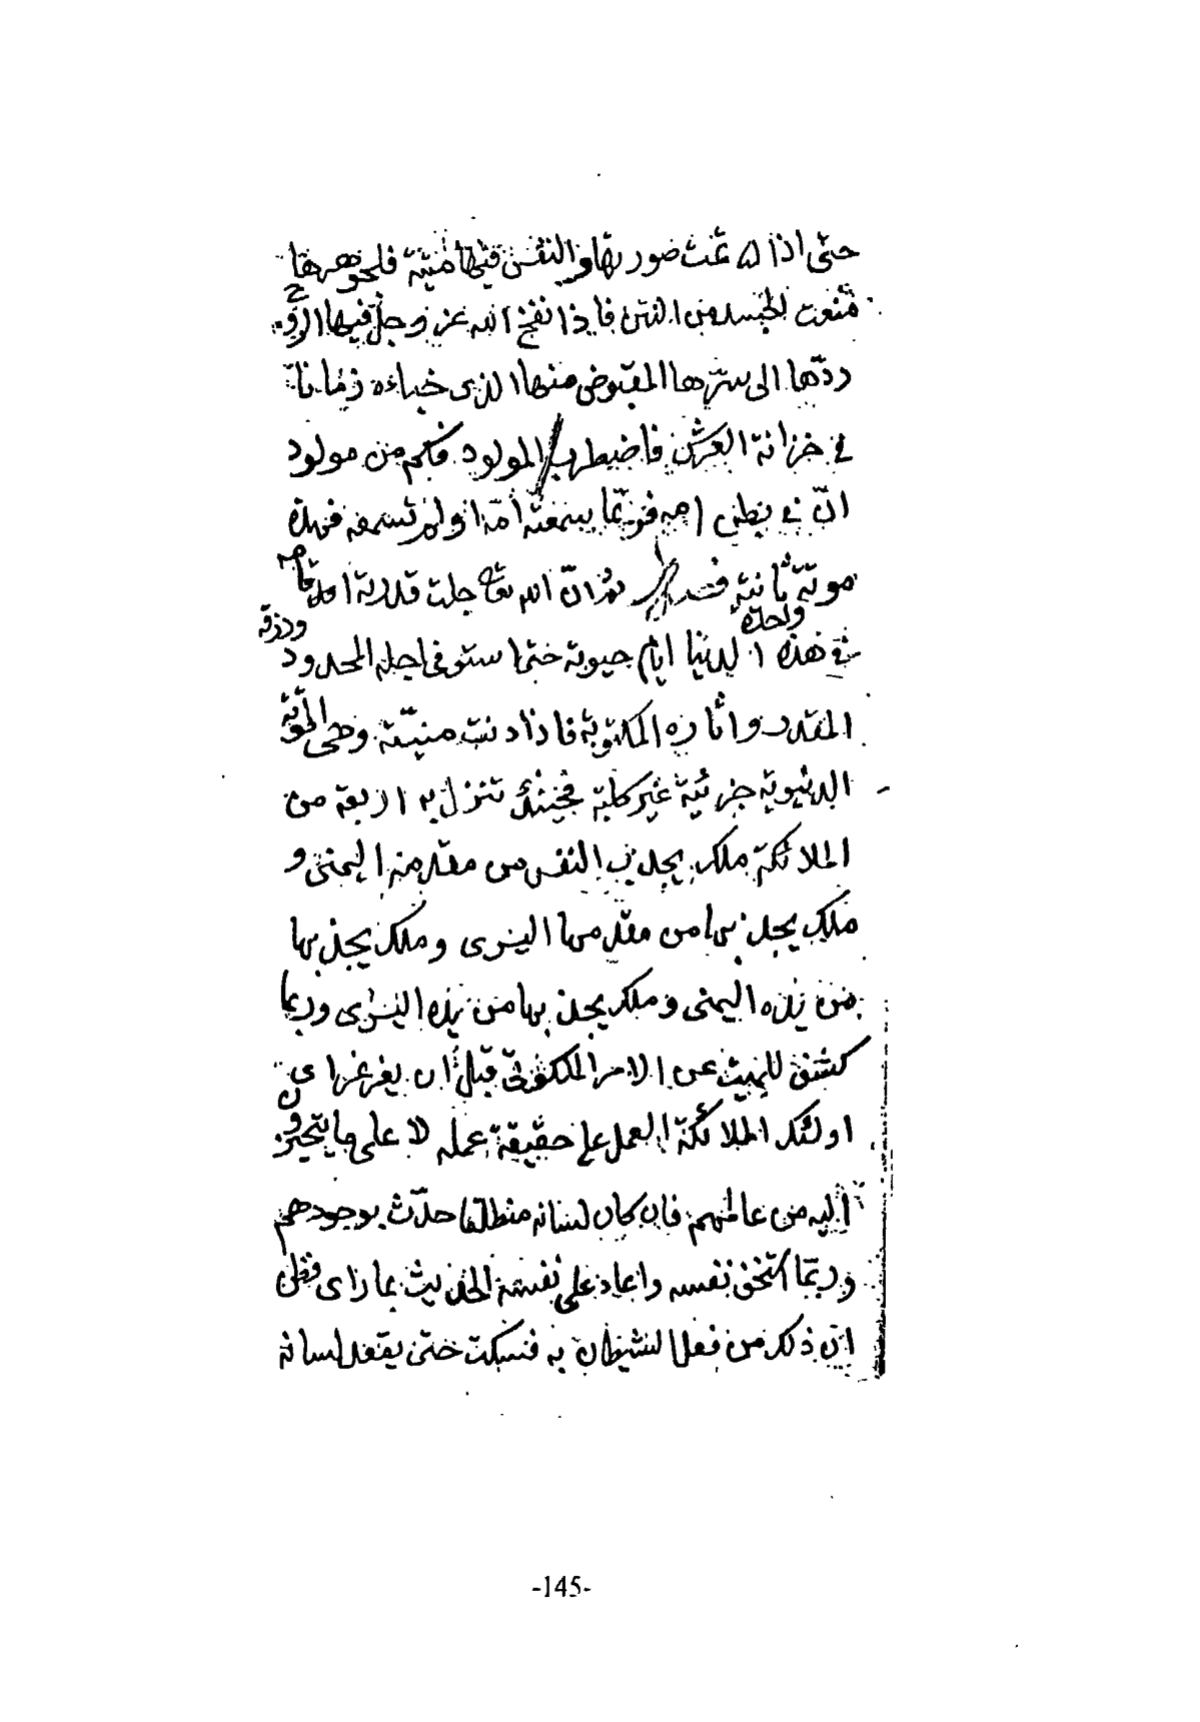 حتى اذا تمت صورتها والنفس فيها ميتة فلجوهرها
منعت الجسد من النتن فاذا نفخ الله عز وجل فيها الروح
ردّها الى سرّها المقبوض منها الذى خباءه زمانا
فى خزانة العرش فاضطرب المولود فكم من مولود
انّ فى بطن امه فربّما سمعته امّه او لم تسمعه فهذه
موتة ثانية ثم انّ الله تعالى جلت قدرته اقامه
واحدة
فى هذه الدنيا ايام حيوته حتى استوفى اجله المحدود
ورزقه
المقدر واثاره المكتوبة فاذا دنت منيّته وهى الموتة
الدنيوية جزئية غير كلية فحينئذ تنزل به اربعة من
الملائكة ملك يجذب النفس من مقدمه اليمنى و
ملك يجذبها من مقدمها اليسرى وملك يجذبها
من يده اليمنى وملك يجذبها من يده اليسرى وربما
كشف للميت عن الامر الملكوتى قبل ان يغرغر
اولئك الملائكة العمل على حقيقة عمله لا على ما يتحيزون
اليه من عالمهم فان كان لسانه منطلقا حدّث بوجودهم
وربّما نفسه واعاد على نفسه الحديث بما راى فظن
ان ذلك من فعل الشيطان به فسكت حتى يعقد لسانه
-145-